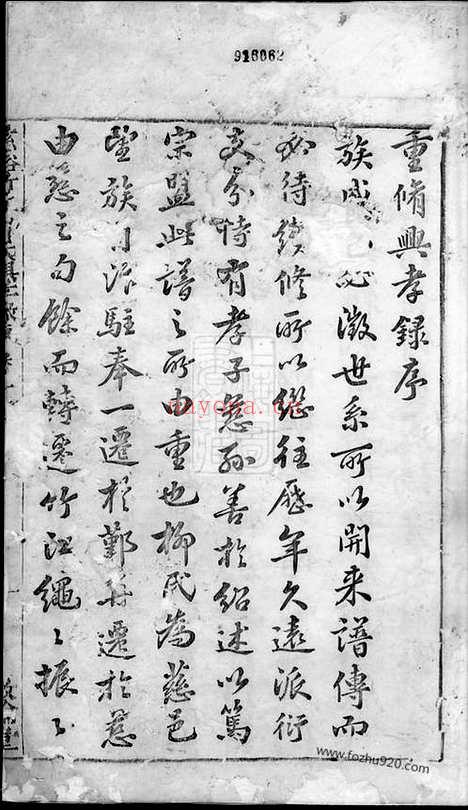 916062
重脩興孝錄序
族必徵世系所以開来譜傳而
必待續修所以繼往歷年久遠派衍
支分恃有孝子慈孫善於紹述以篤
宗盟此譜之所由重也柳氏為慈邑
望族自派駐奉一遷於鄞再遷於慈
由慈之句餘而轉遷竹江繩〻振〻
nayona.cn
www.fozhu920.com